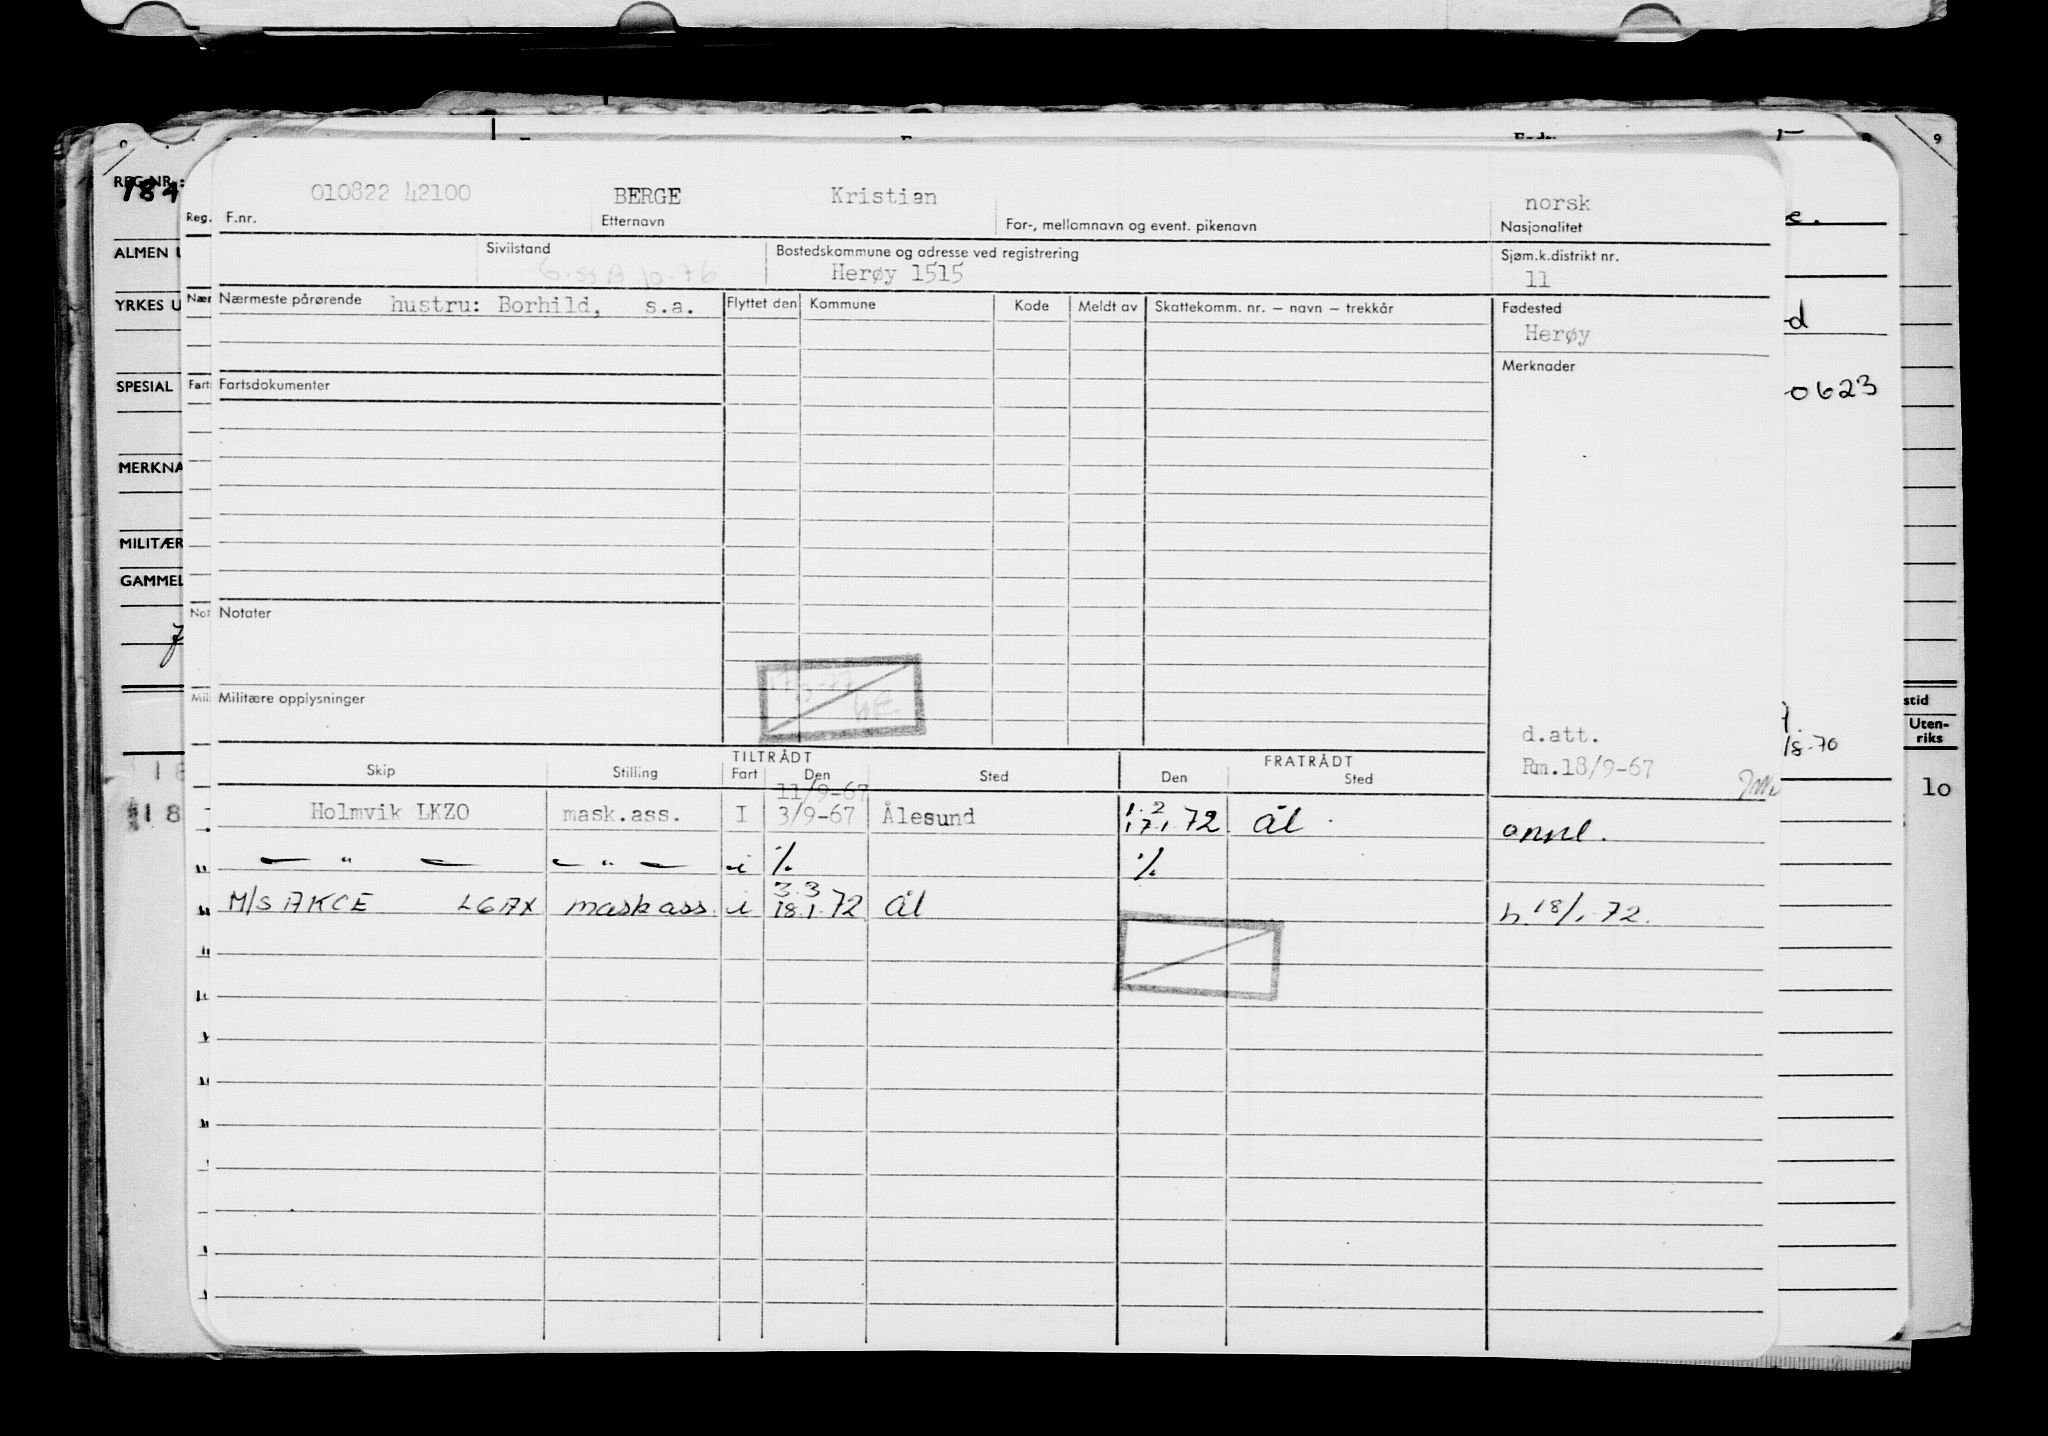 REG.NR.:
184
ALMEN U
YRKES U
SPESIAL
MERKNA
MILITÆR
GAMMEL
9
Reg.
010822 42100 BERGE Kristian norsk
F.nr. Etternavn For-, mellomnavn og event. pikenavn Nasjonalitet
Sivilstand Bostedskommune og adresse ved registrering Sjøm.k.distrikt nr.
Herøy 1515 11
Nærmeste pårørende hustru: Borhild, s.a. Flyttet den Kommune Kode Meldt av Skattekomm. nr. – navn – trekkår Fødested
Herøy
Fartsdokumenter Merknader
0623
Notater
Militære opplysninger
d.att.
Rm.18/9-67
TILTRÅDT FRATRÅDT
Skip Stilling Fart Den Sted Den Sted
11/9-67 1.2
Holmvik LKZO mask.ass. I 3/9-67 Ålesund 17.1.72 ål annl.
— " — — " — i ./. ./.
3.3
M/S AKCE LGAX mask ass. i 18.1.72 ål h 18/1.72.
stid
Uten-
riks
18-70
10
18
18